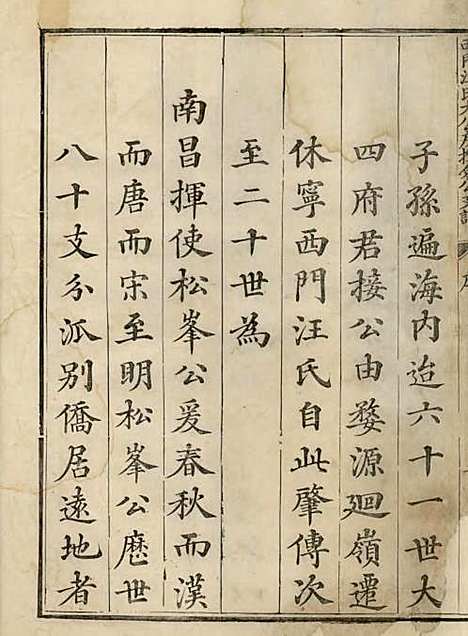 子孫遍海内迨六十一世大
四府君接公由婺源迴嶺遷
休寧西門汪氏自此肇傳次
至二十世為
南昌揮使松峯公爰春秋而漢
而唐而宋至明松峯公歷世
八十支分派别僑居遠地者